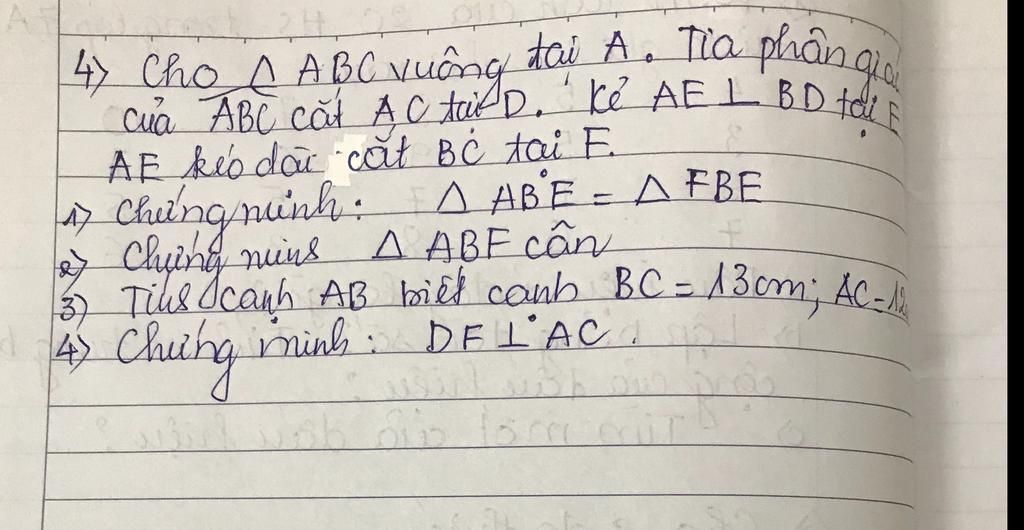 4) Cho Δ ABC vuông tại A. Tia phân giác
của ABC cắt AC tại D. Kẻ AE ⊥ BD tại E
AE kéo dài cắt BC tại F.
1) Chứng minh: Δ ABE = Δ FBE
2) Chứng minh Δ ABF cân
3) Tính cạnh AB biết cạnh BC = 13cm; AC = 12
4) Chứng minh: DF ⊥ AC.